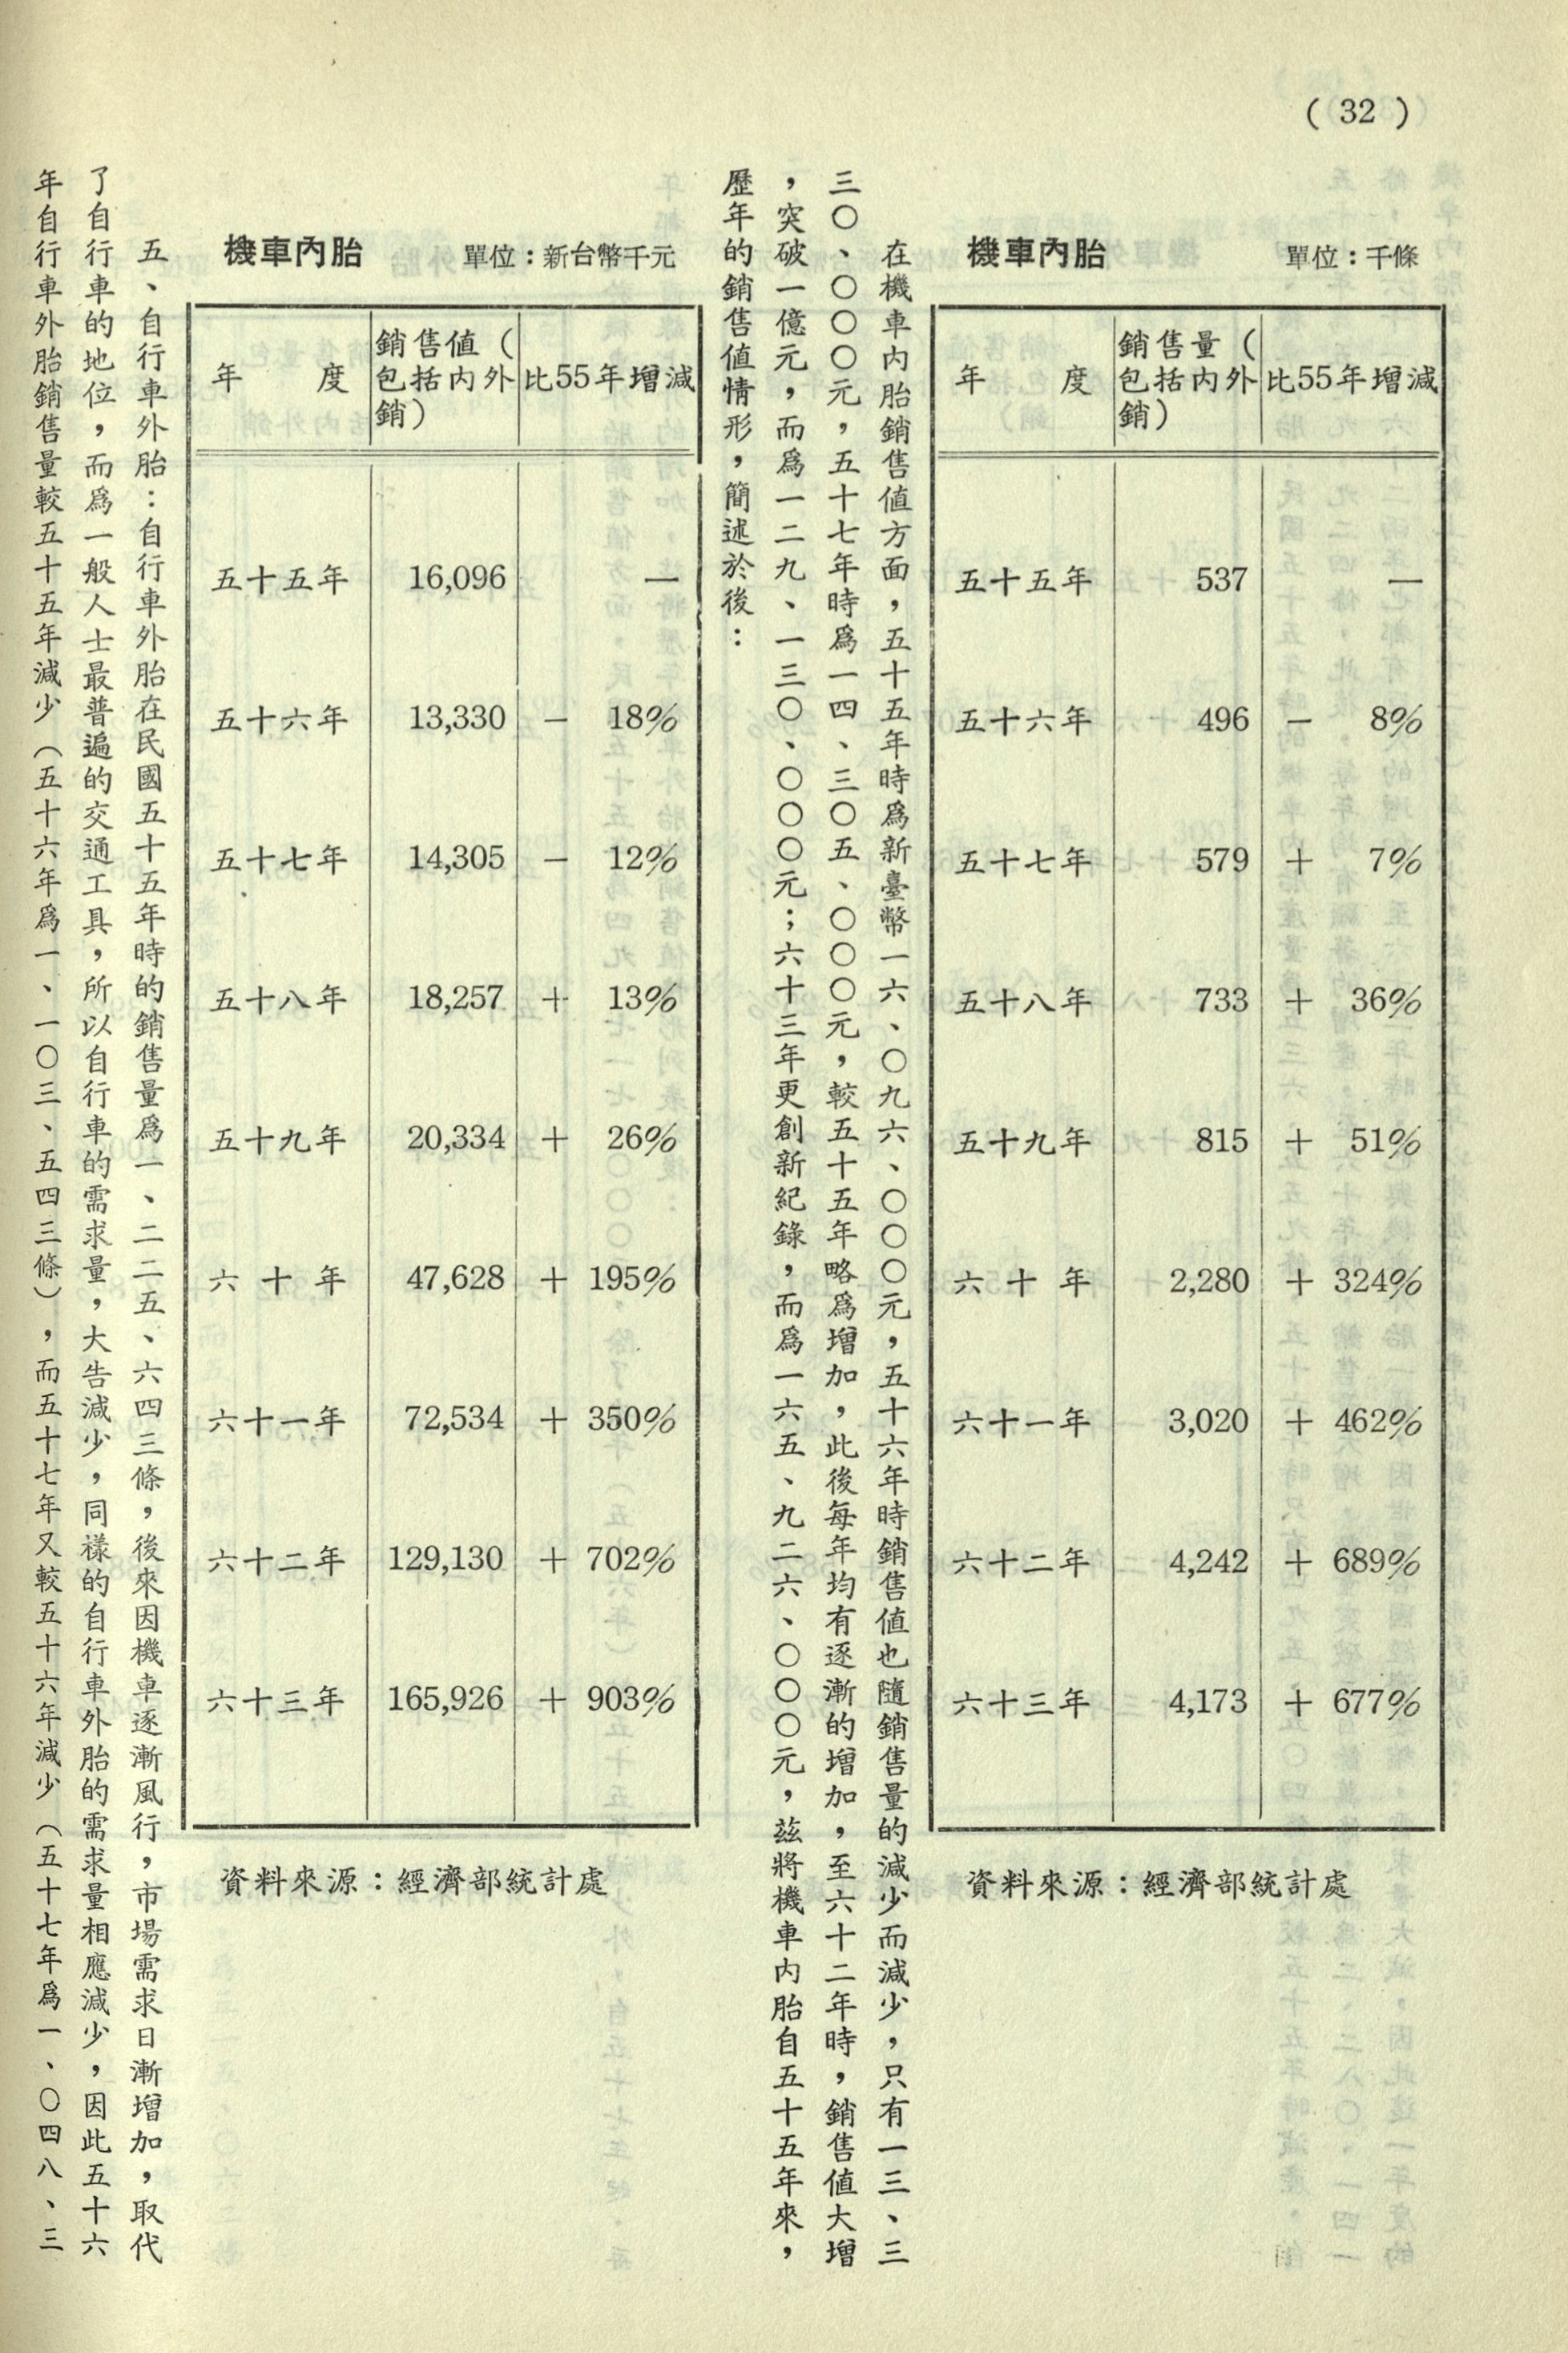 ( 32 )
機車內胎 單位：千條
年 度 銷售量（包括內外銷） 比55年增減
五十五年 537 —
五十六年 496 － 8%
五十七年 579 ＋ 7%
五十八年 733 ＋ 36%
五十九年 815 ＋ 51%
六十年 2,280 ＋ 324%
六十一年 3,020 ＋ 462%
六十二年 4,242 ＋ 689%
六十三年 4,173 ＋ 677%
資料來源：經濟部統計處
在機車內胎銷售值方面，五十五年時爲新臺幣一六、〇九六、〇〇〇元，五十六年時銷售值也隨銷售量的減少而減少，只有一三、三
三〇、〇〇〇元，五十七年時爲一四、三〇五、〇〇〇元，較五十五年略爲增加，此後每年均有逐漸的增加，至六十二年時，銷售值大增
，突破一億元，而爲一二九、一三〇、〇〇〇元；六十三年更創新紀錄，而爲一六五、九二六、〇〇〇元，茲將機車內胎自五十五年來，
歷年的銷售值情形，簡述於後：
機車內胎 單位：新台幣千元
年 度 銷售值（包括內外銷） 比55年增減
五十五年 16,096 —
五十六年 13,330 － 18%
五十七年 14,305 － 12%
五十八年 18,257 ＋ 13%
五十九年 20,334 ＋ 26%
六十年 47,628 ＋ 195%
六十一年 72,534 ＋ 350%
六十二年 129,130 ＋ 702%
六十三年 165,926 ＋ 903%
資料來源：經濟部統計處
五、自行車外胎：自行車外胎在民國五十五年時的銷售量爲一、二二五、六四三條，後來因機車逐漸風行，市場需求日漸增加，取代
了自行車的地位，而爲一般人士最普遍的交通工具，所以自行車的需求量，大告減少，同樣的自行車外胎的需求量相應減少，因此五十六
年自行車外胎銷售量較五十五年減少（五十六年爲一、一〇三、五四三條），而五十七年又較五十六年減少（五十七年爲一、〇四八、三